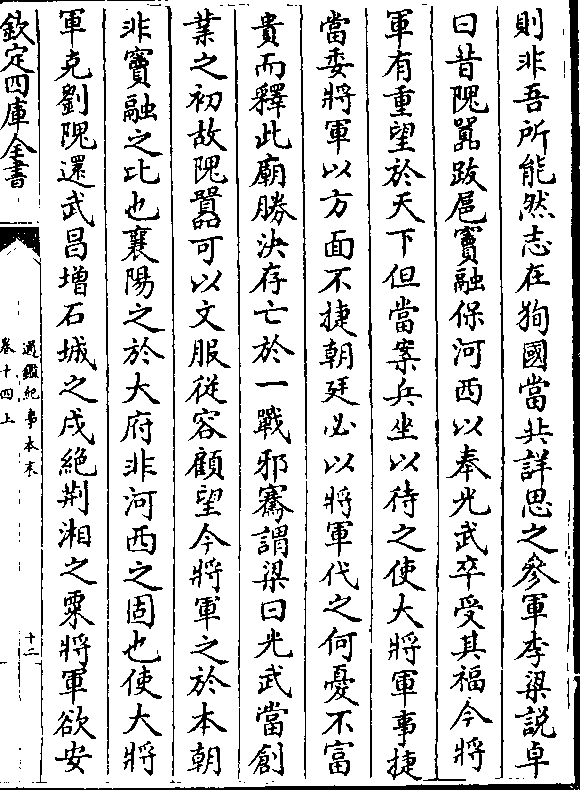 則非吾所能然志在狥國當共詳思之參軍李梁說卓
曰昔隗囂跋扈竇融保河西以奉光武卒受其福今將
軍有重望於天下但當案兵坐以待之使大將軍事捷
當委將軍以方面不捷朝廷必以將軍代之何憂不富
貴而釋此廟勝決存亡於一戰邪騫謂梁曰光武當創
業之初故隗囂可以文服從容顧望今將軍之於本朝
非竇融之比也襄陽之於大府非河西之固也使大將
軍克劉隗還武昌增石城之戍絕荆湘之粟將軍欲安
欽定四庫全書
通鑑紀事本末
卷十四上
十二